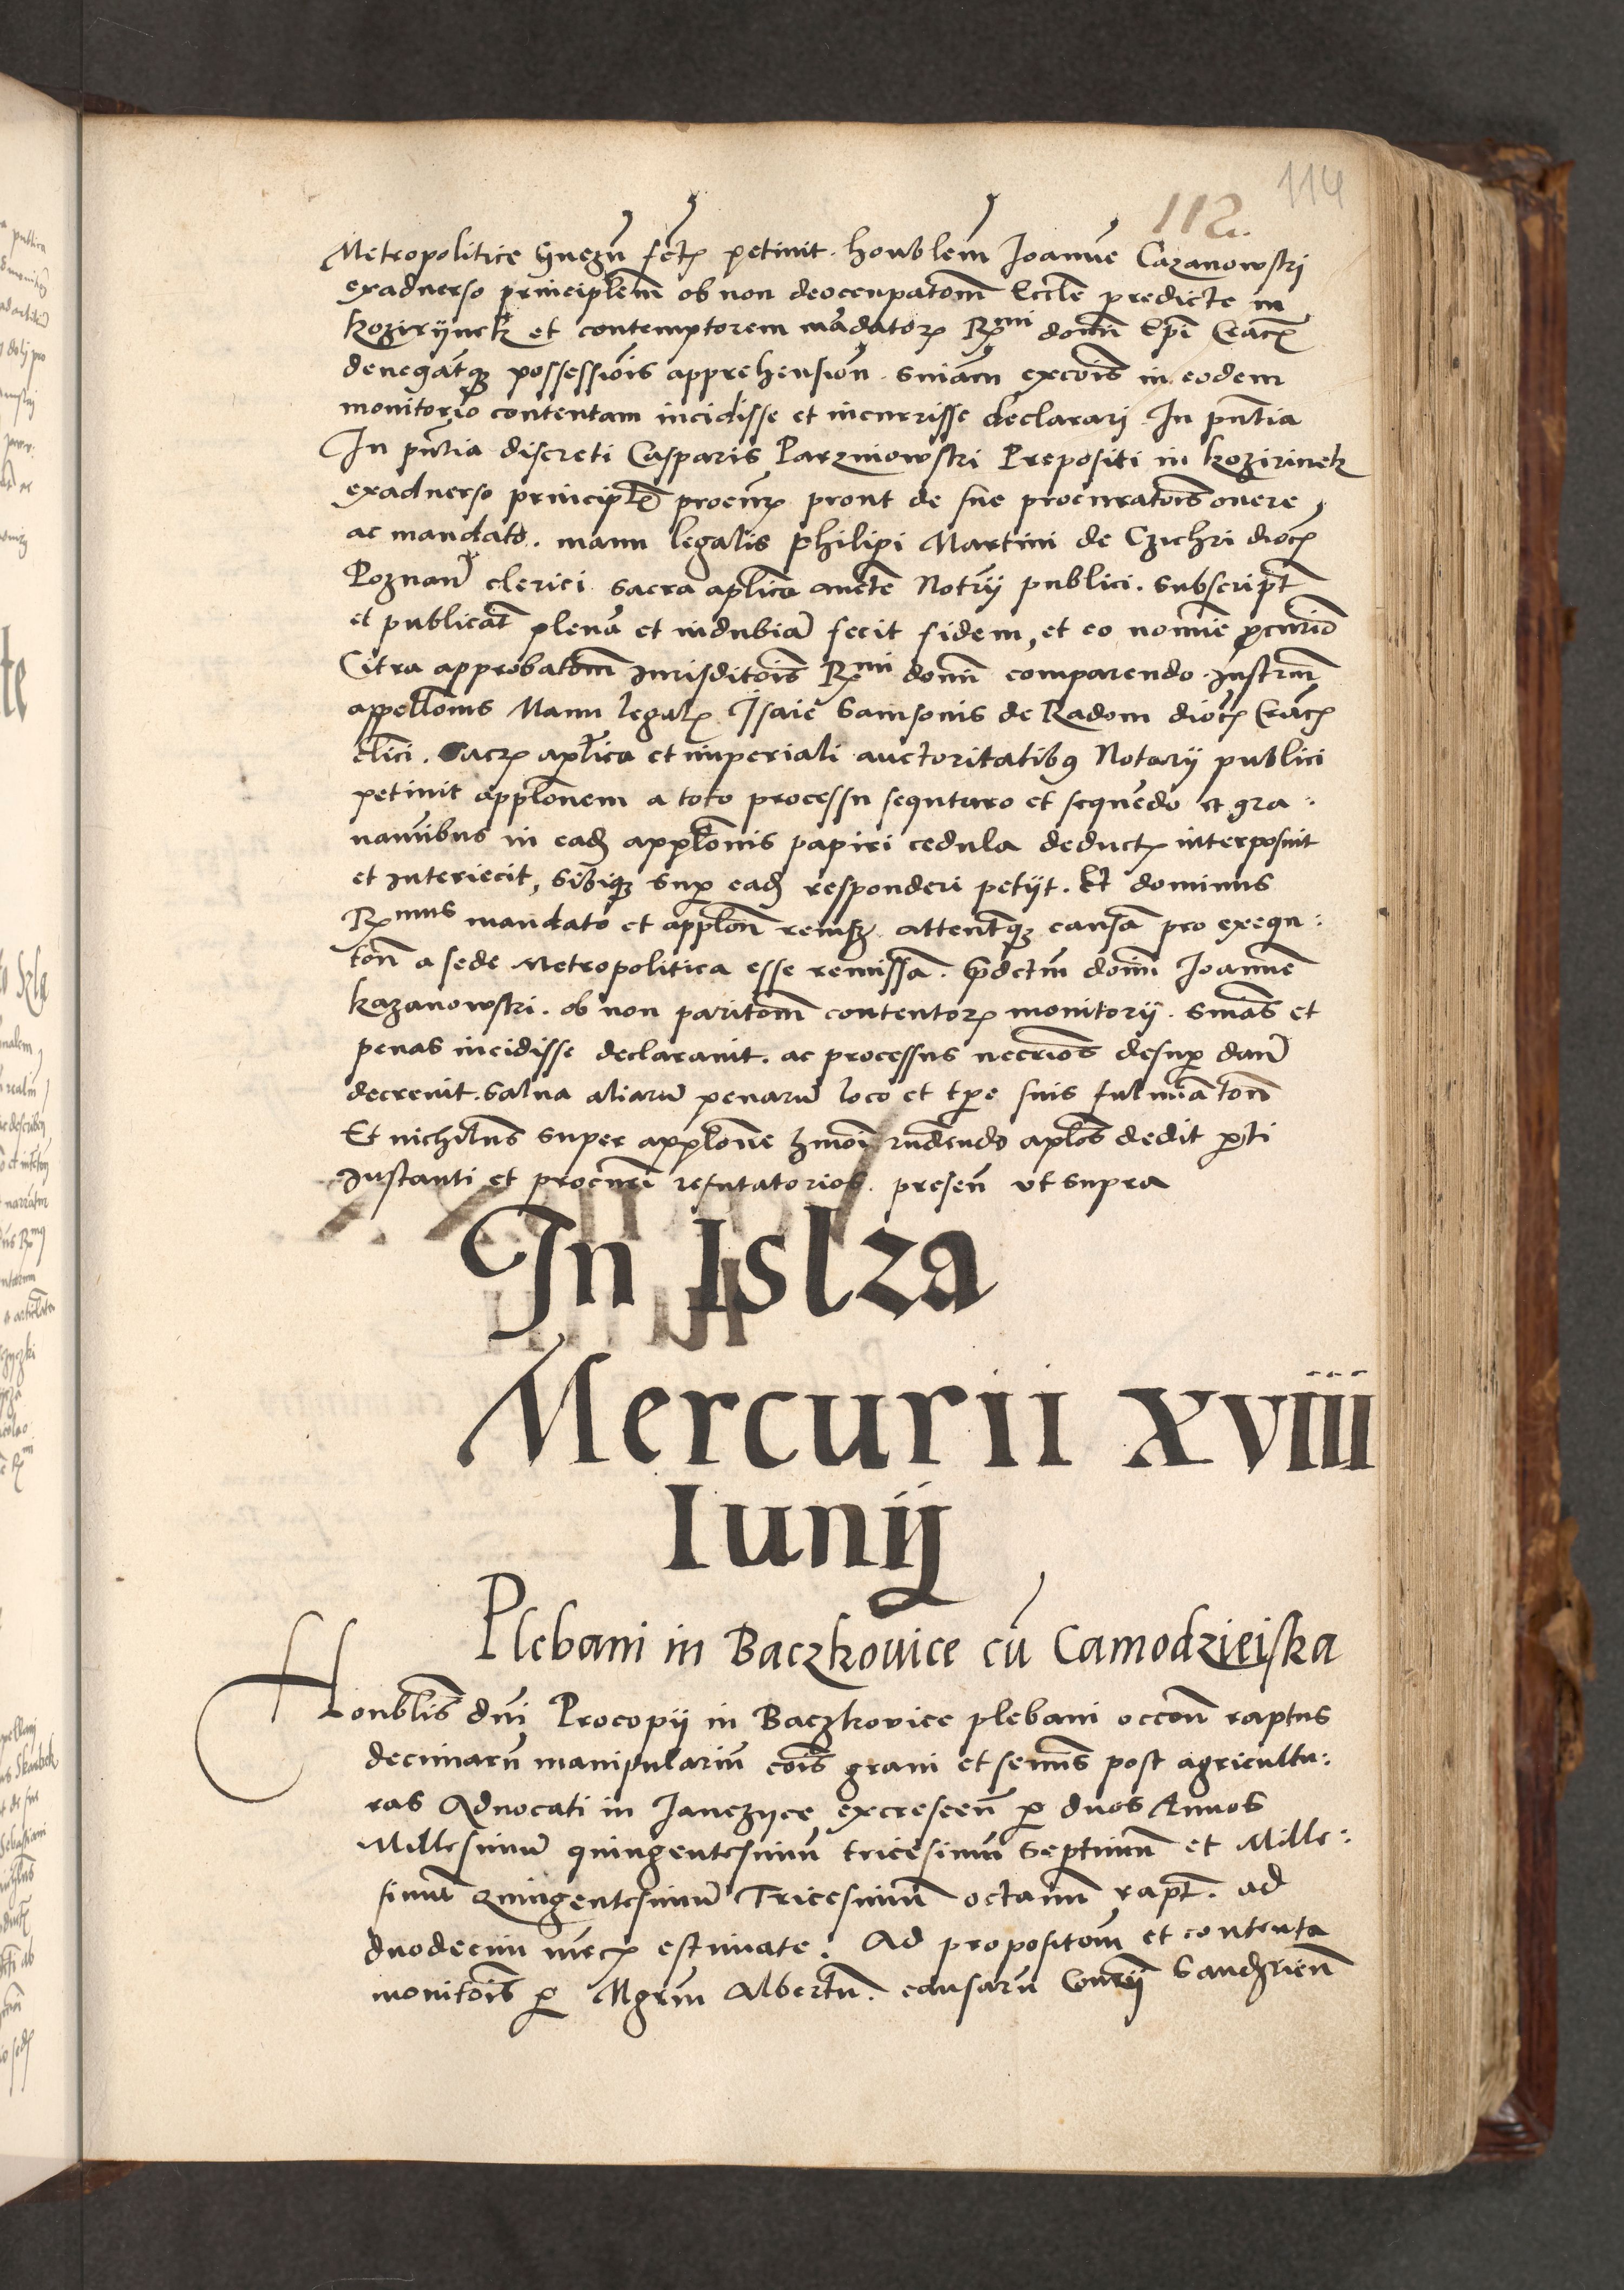 114
112.
Metropolitice Gnezn̄ fctȝ petiuit. honblem̄ Joannē Cazanowski
exaduerso principlem̄ ob non deoccupatōm Eccle predicte in
kozirijnek et contemptorem mādatorȝ R̄mi domī Epī Cracȝ
denegātqȝ possessiōis apprehensiōn. Sniām excōis in eodem
monitorio contentam incidisse et incurrisse declararj. In pn̄tia
In pn̄tia discreti Casparis Parzniowski Prepositi in kozirinek
exaduerso principlē procurȝ prout de sue procuratōis onere
ac mandato. manu legalis philipi Martini de Czichri diocȝ
Poznan̄ clerici sacra aplica aucte Notrij publici. subscript
et publicat plenā et indubiā fecit fidem, et eo nomīe ꝓcurio
Citra approbatōm Jurisditōis R̄mi domī comparendo Instrm̄
appellonis Manu legalȝ Jsaie Samsonis de Radom diocȝ Cracȝ
clici. Sacrȝ aplica et imperiali auctoritatibꝯ Notarij publici
petiuit applonem a toto processu sequturo et sequēdo et gra:
uamībus in eadȝ applonis papiri cedula deductȝ interposuit
et interiecit, Sibiqȝ supꝰ eadȝ responderi petijt. Et dominus
R̄mus mandato et applon̄ remissȝ attentqȝ causā pro exequ:
ton̄ a sede Metropolitica esse remissā. Prdctm̄ domī Joannē
kazanowski. ob non paritōm contentorȝ monitorij. Sniās et
penas incidisse declarauit. ac processus necrios desupꝰ dan̄
decreuit. Salua aliarū penarū loco et tpe suis fulminatōn
Et nichilus super applone hmōi rn̄dendo aplos dedit pti
Instanti et procuri refutatorios. presen̄ vt supra
In Islza
Mercurii XVIIII
Iunij
Plebani in Baczkouice cū Camodzieiska
Honblis dn̄i Procopij in Baczkovice plebani occon̄ raptus
decimarū manipularium̄ cois grani et semīs post agricultu:
ras Aduocati in Janczijce excrescen̄ ꝑ duos Annos
Millesimū quingentesimū tricesimū septimū et Mille:
simū Quingentesimū Tricesimū octauū rapt. ad
duodecim mrcȝ estimate. Ad propositōm et contenta
monitōis ꝑ Mgrm̄ Albertū. causarū Conrij Sandzrien̄